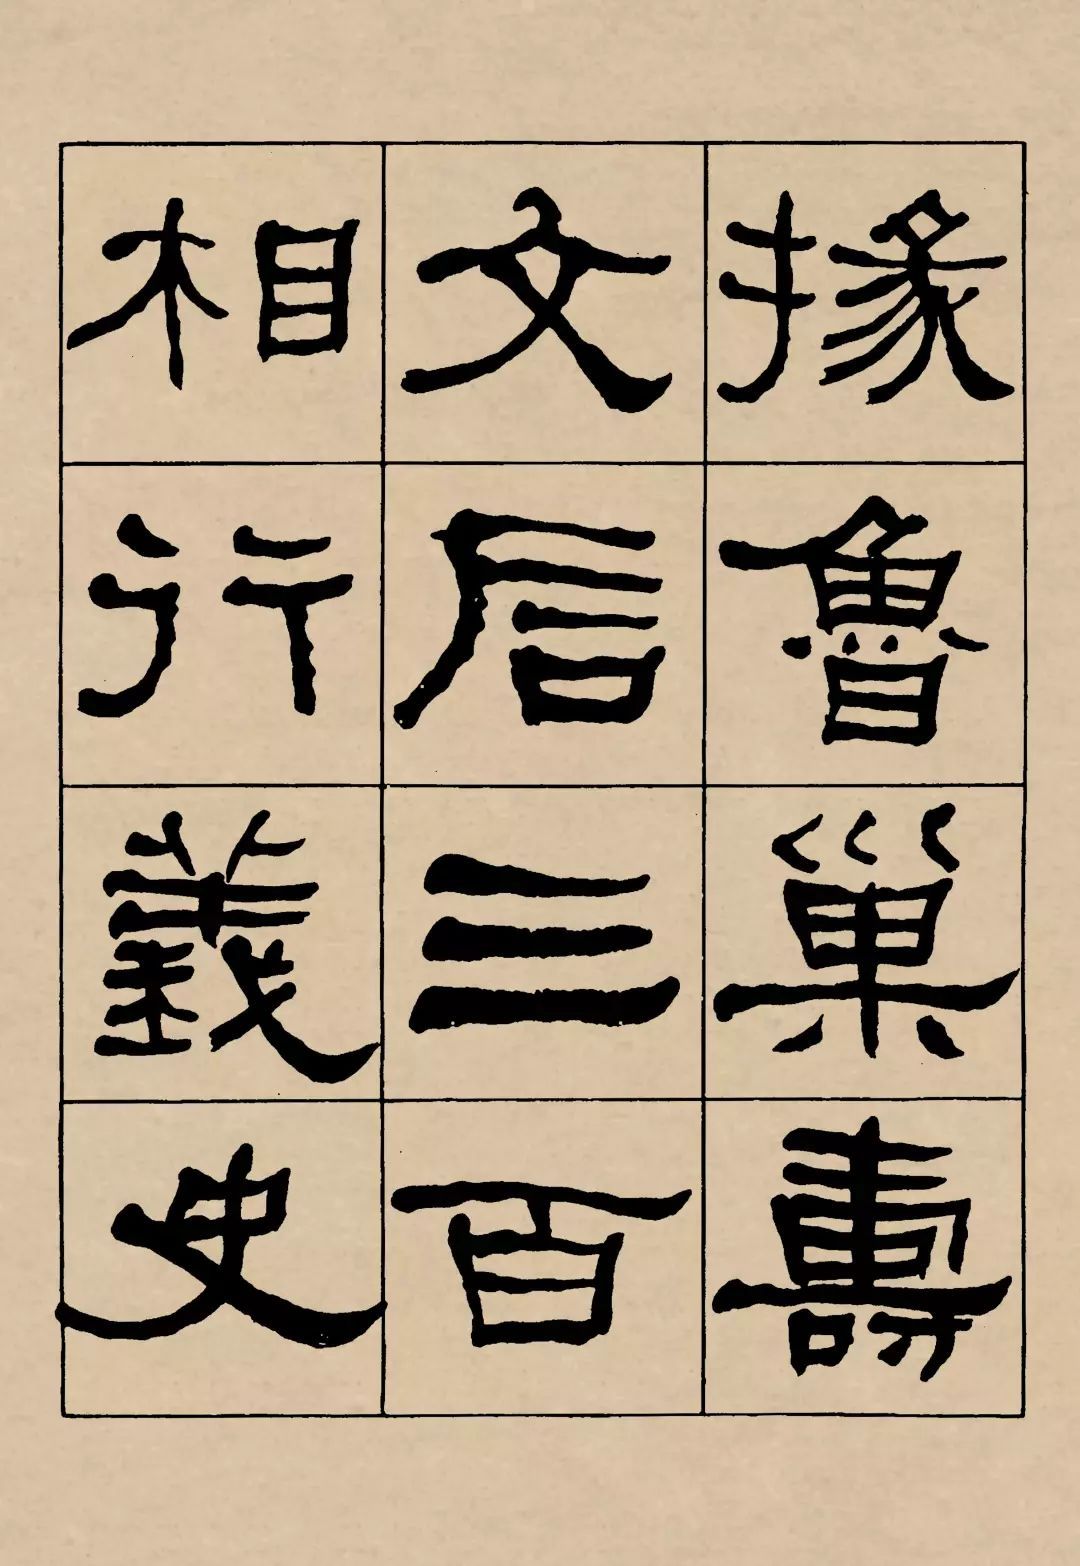 掾魯巢壽
文后三百
相行義史